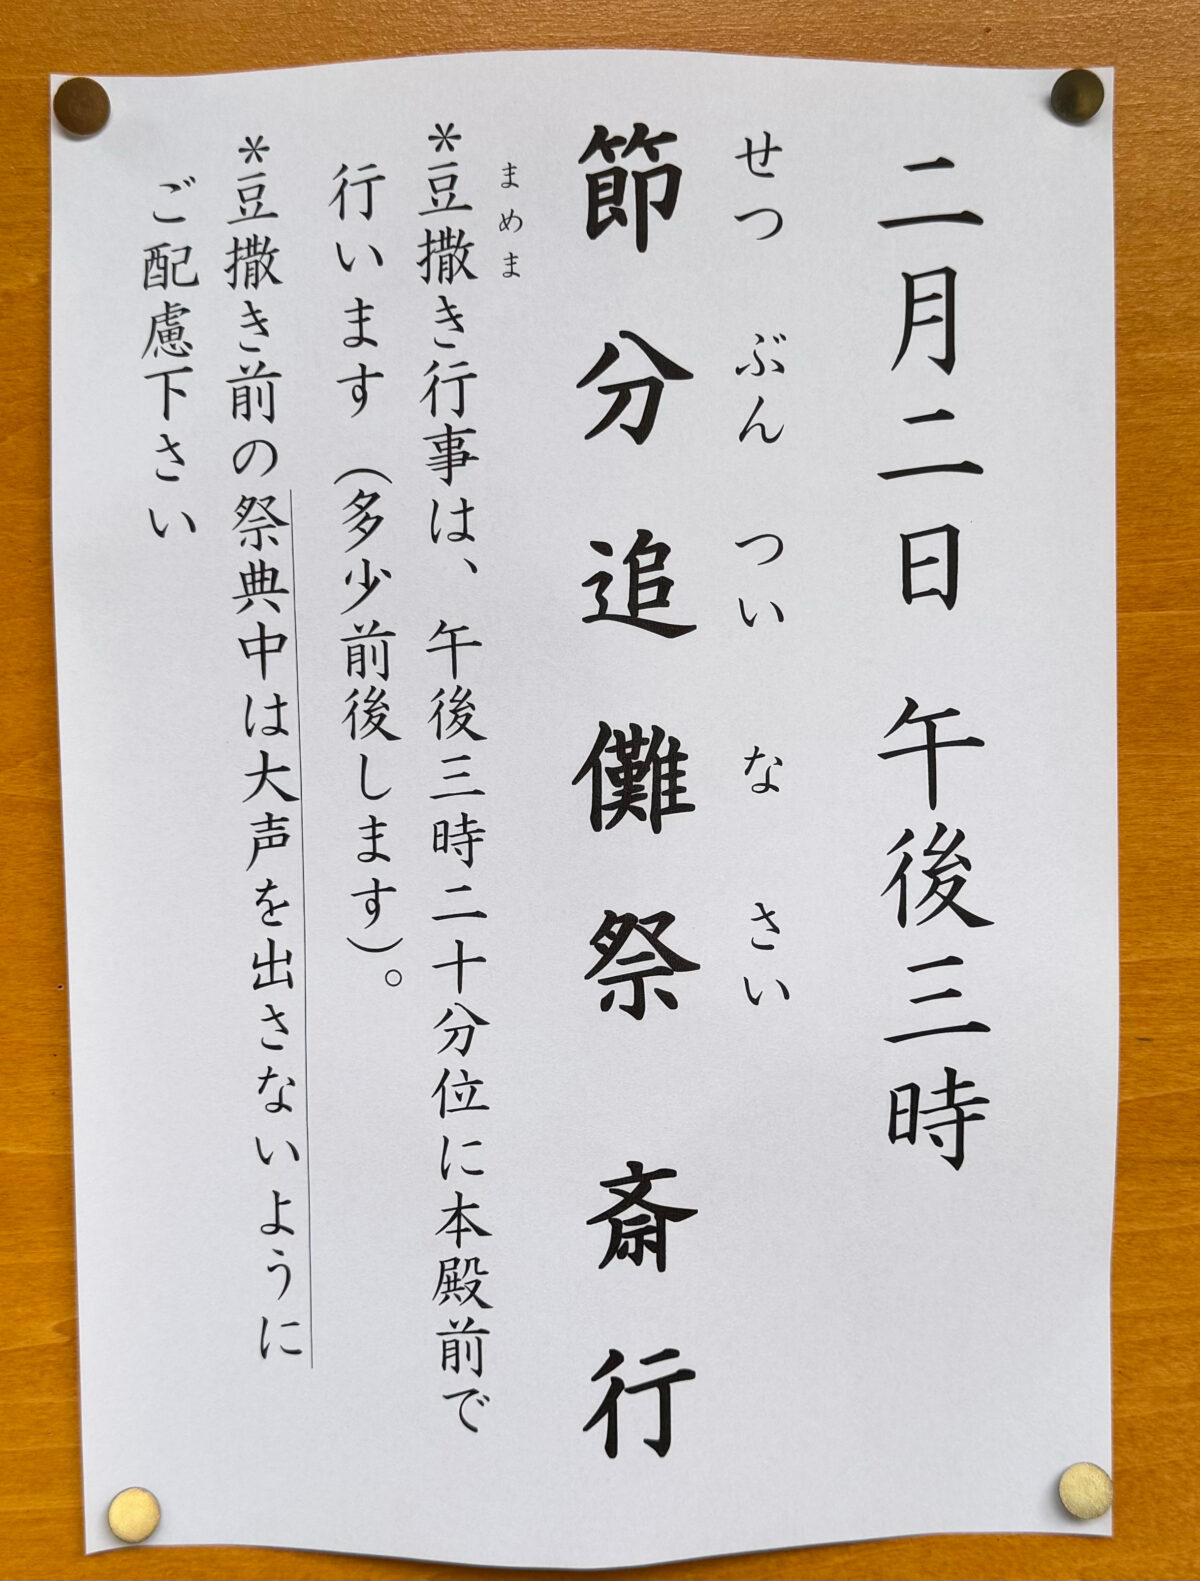 二月二日 午後三時
せつ ぶん つい な さい
節分追儺祭 斎行
まめま
＊豆撒き行事は、午後三時二十分位に本殿前で
行います（多少前後します）。
＊豆撒き前の祭典中は大声を出さないように
ご配慮下さい